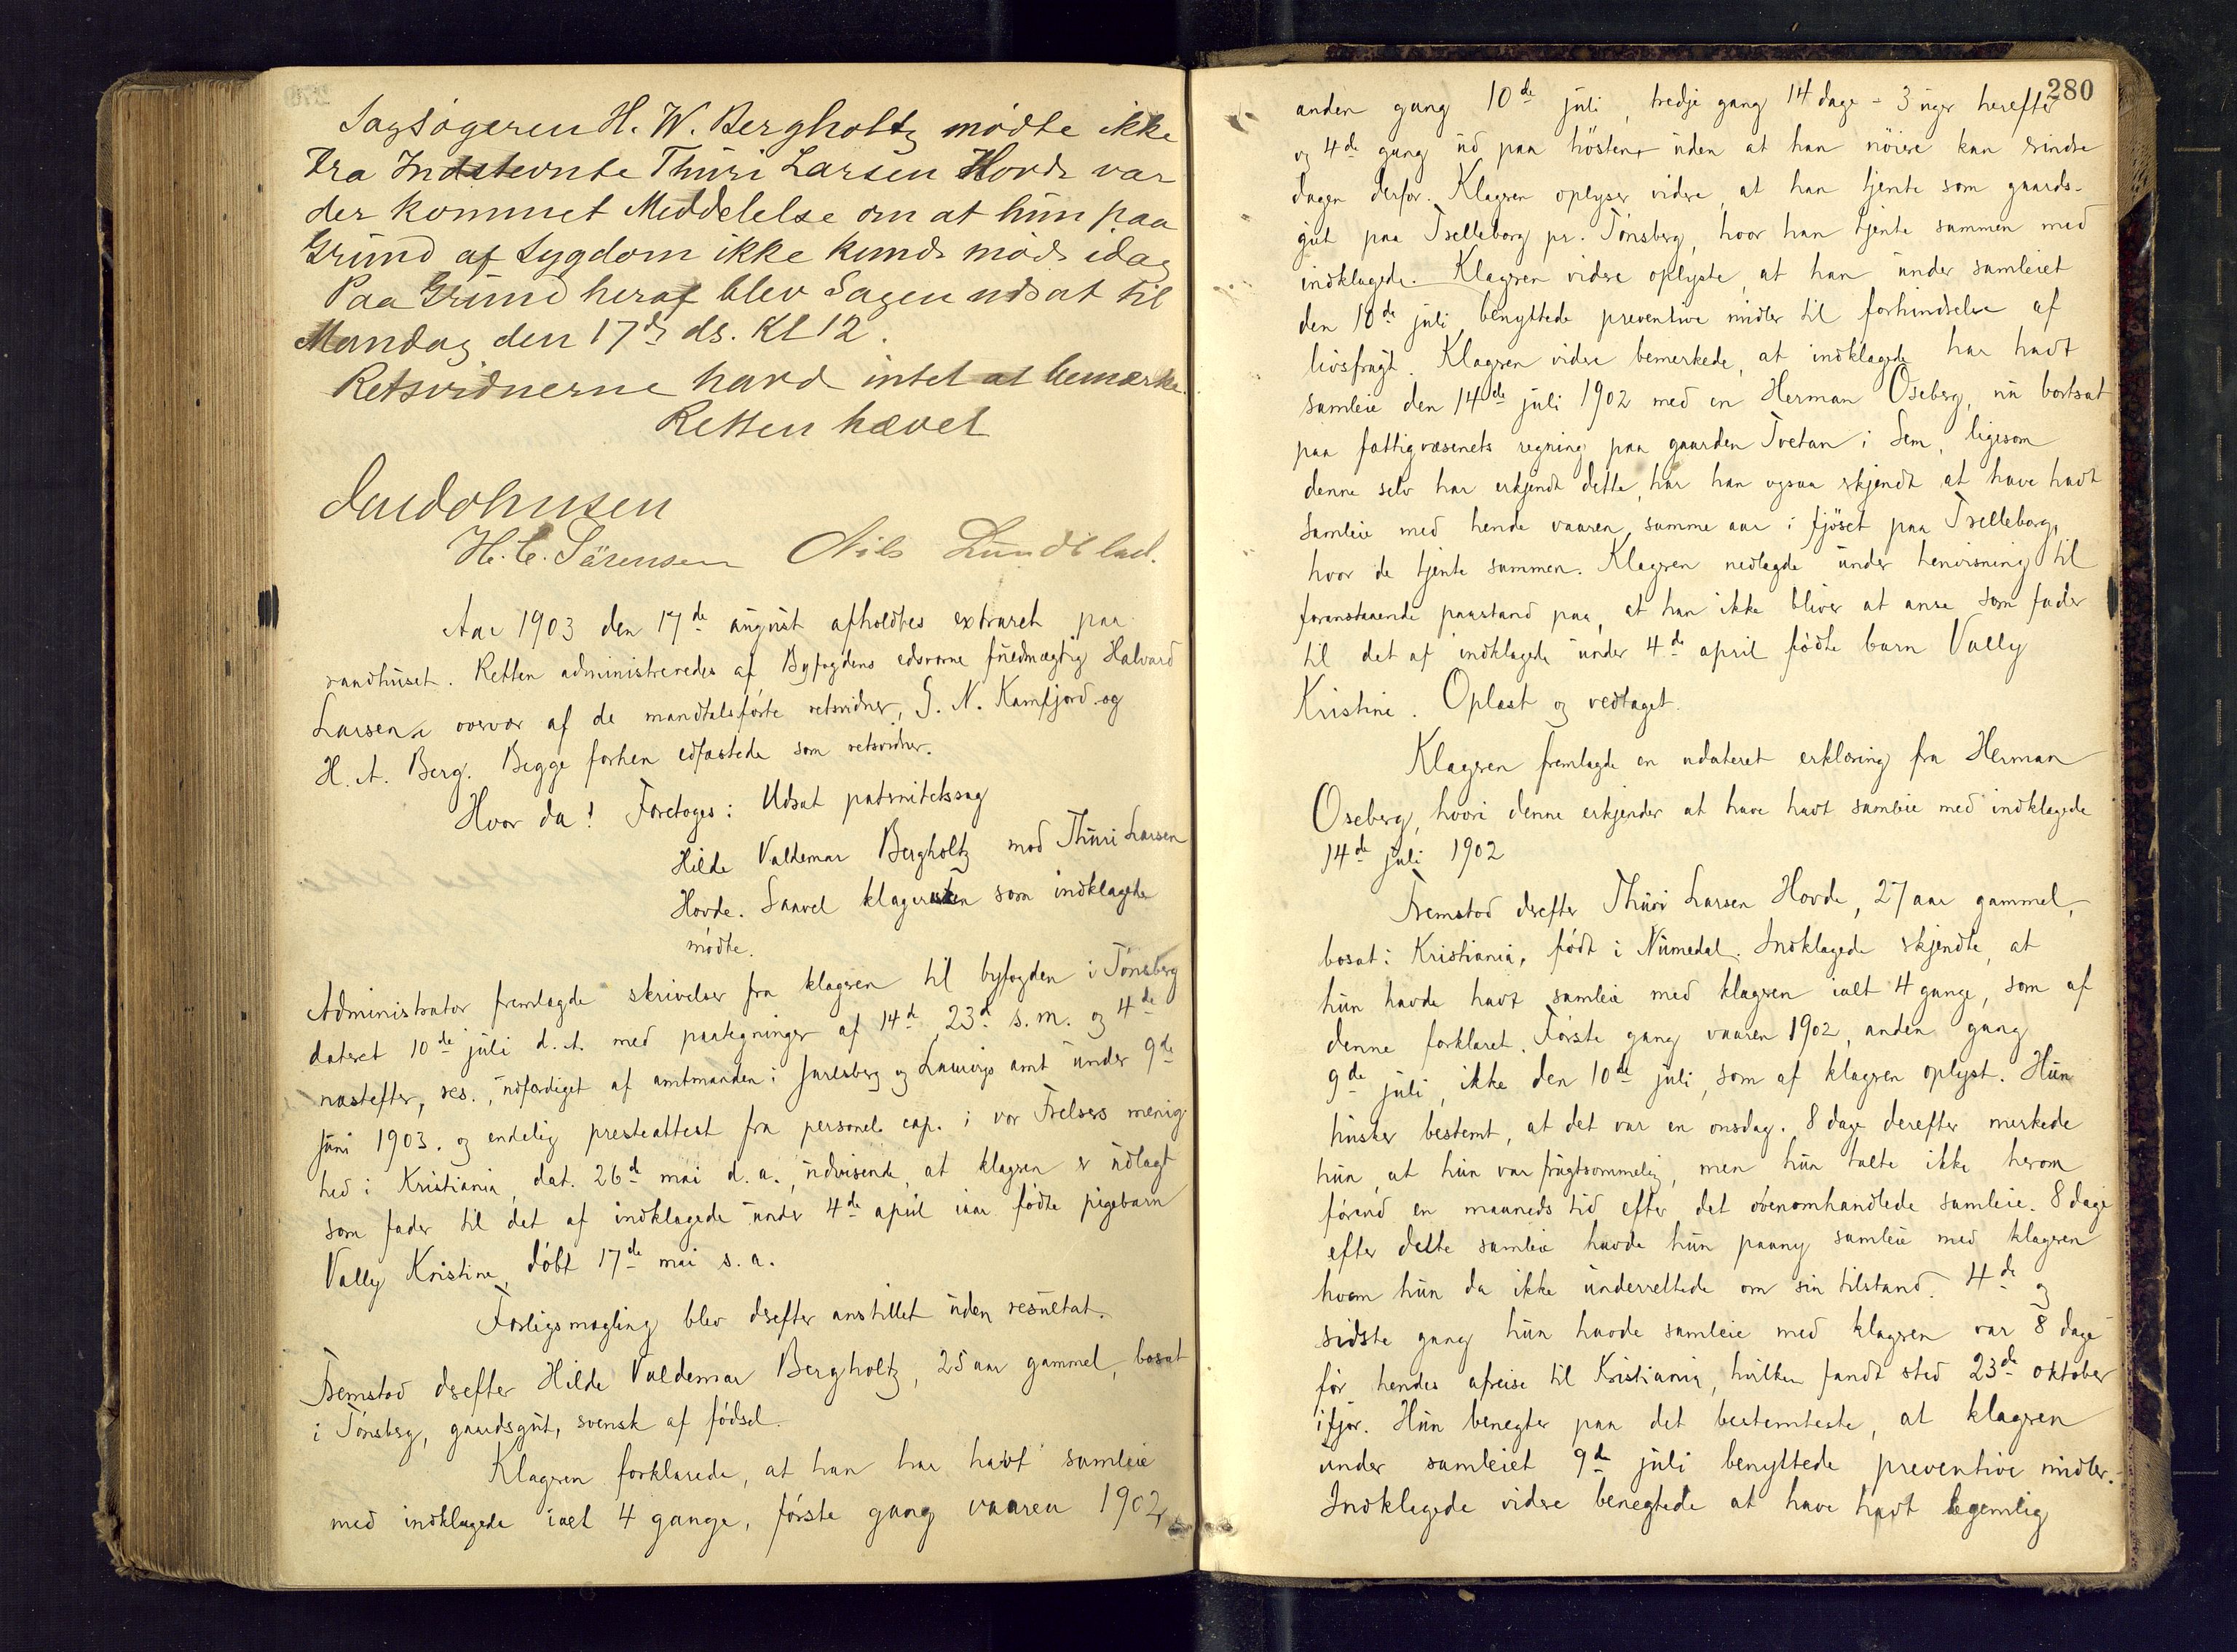 Sagsøgeren H. W. Bergholtz mødte ikke
Fra Indstevnte Thuri Larsen Hovde var
der kommet Meddelelse om at hun paa
Grund af Sygdom ikke kunde møde idag
Paa Grund heraf blev Sagen udsat til
Mandag den 17de ds. Kl 12.
Retsvidnerne havde intet at bemærke.
Retten hævet
H. C. Sörensen Nils Lundblad.
Aar 1903 den 17de august afholdtes extraret paa
raadhuset. Retten administreredes af Byfogdens edsvorne fuldmægtig Halvard
Larsen i overvær af de mandtalsførte retsvidner, G. N. Kamfjord og
H. A. Berg. Begge forhen edfæstede som retsvidner.
Hvor da! Foretoges: Udsat paternitetssag
Hilde Valdemar Bergholtz mod Thuri Larsen
Hovde. Saavel klageren som indklagede
mødte.
Administrator fremlagde skrivelser fra klageren til byfogden i Tönsberg
dateret 10de juli d. A. med paategninger af 14de, 23d s. m. og 4de
næstefter, res., udfærdiget af amtmanden i Jarlsberg og Laurvigs amt under 9de
juni 1903. og endelig presteattest fra personel cap. i vor Frelsers menig
hed i Kristiania, dat. 26d mai d. a., udvisende, at klageren er udlagt
som fader til det af indklagede under 4de april iaar fødte pigebarn
Vally Kristine, døbt 17de mai s. a.
Forligsmægling blev derefter anstillet uden resultat.
Fremstod derefter Hilde Valdemar Bergholtz, 25 aar gammel, bosat
i Tönsberg, gaardsgut, svensk af fødsel.
Klageren forklarede, at han har havt samleie
med indklagede ialt 4 gange, første gang vaaren 1902,
280
anden gang 10de juli, tredje gang 14 dage - 3 uger herefter
og 4de gang ud paa høsten, uden at han nöiere kan erindre
dagen derfor. Klageren oplyser videre, at han tjente som gaards-
gut paa Trelleborg pr. Tönsberg, hvor han tjente sammen med
indklagede. Klageren videre oplyste, at han under samleiet
den 10de juli benyttede preventive midler til forhindrelse af
livsfrugt. Klageren videre bemerkede, at indklagede har havt
samleie den 14de juli 1902 med en Herman Oseberg, nu bortsat
paa fattigvæsenets regning paa gaarden Tvetan i Sem, ligesom
denne selv har erkjendt dette, har han ogsaa erkjendt at have havt
samleie med hende vaaren samme aar i fjöset paa Trelleborg,
hvor de tjente sammen. Klageren nedlagde under henvisning til
foranstaaende paastand paa, at han ikke bliver at anse som fader
til det af indklagede under 4de april fødte barn Vally
Kristine. Oplæst og vedtaget.
Klageren fremlagde en udateret erklæring fra Herman
Oseberg, hvori denne erkjender at have havt samleie med indklagede
14de juli 1902
Fremstod derefter Thuri Larsen Hovde, 27 aar gammel,
bosat i Kristiania, født i Numedal. Indklagede erkjendte, at
hun havde havt samleie med klageren ialt 4 gange, som af
denne forklaret. Første gang vaaren 1902, anden gang
9de juli, ikke den 10de juli, som af klageren oplyst. Hun
husker bestemt, at det var en onsdag. 8 dage derefter merkede
hun, at hun var frugtsommelig, men hun talte ikke herom
førend en maaneds tid efter det ovenomhandlede samleie. 8 dage
efter dette samleie havde hun paany samleie med klageren
hvem hun da ikke underrettede om sin tilstand. 4de og
sidste gang hun havde samleie med klageren var 8 dage
før hendes afreise til Kristiania, hvilken fandt sted 23de oktober
ifjor. Hun benegter paa det bestemteste, at klageren
under samleiet 9de juli benyttede preventive midler.
Indklagede videre benegtede at have havt legemlig